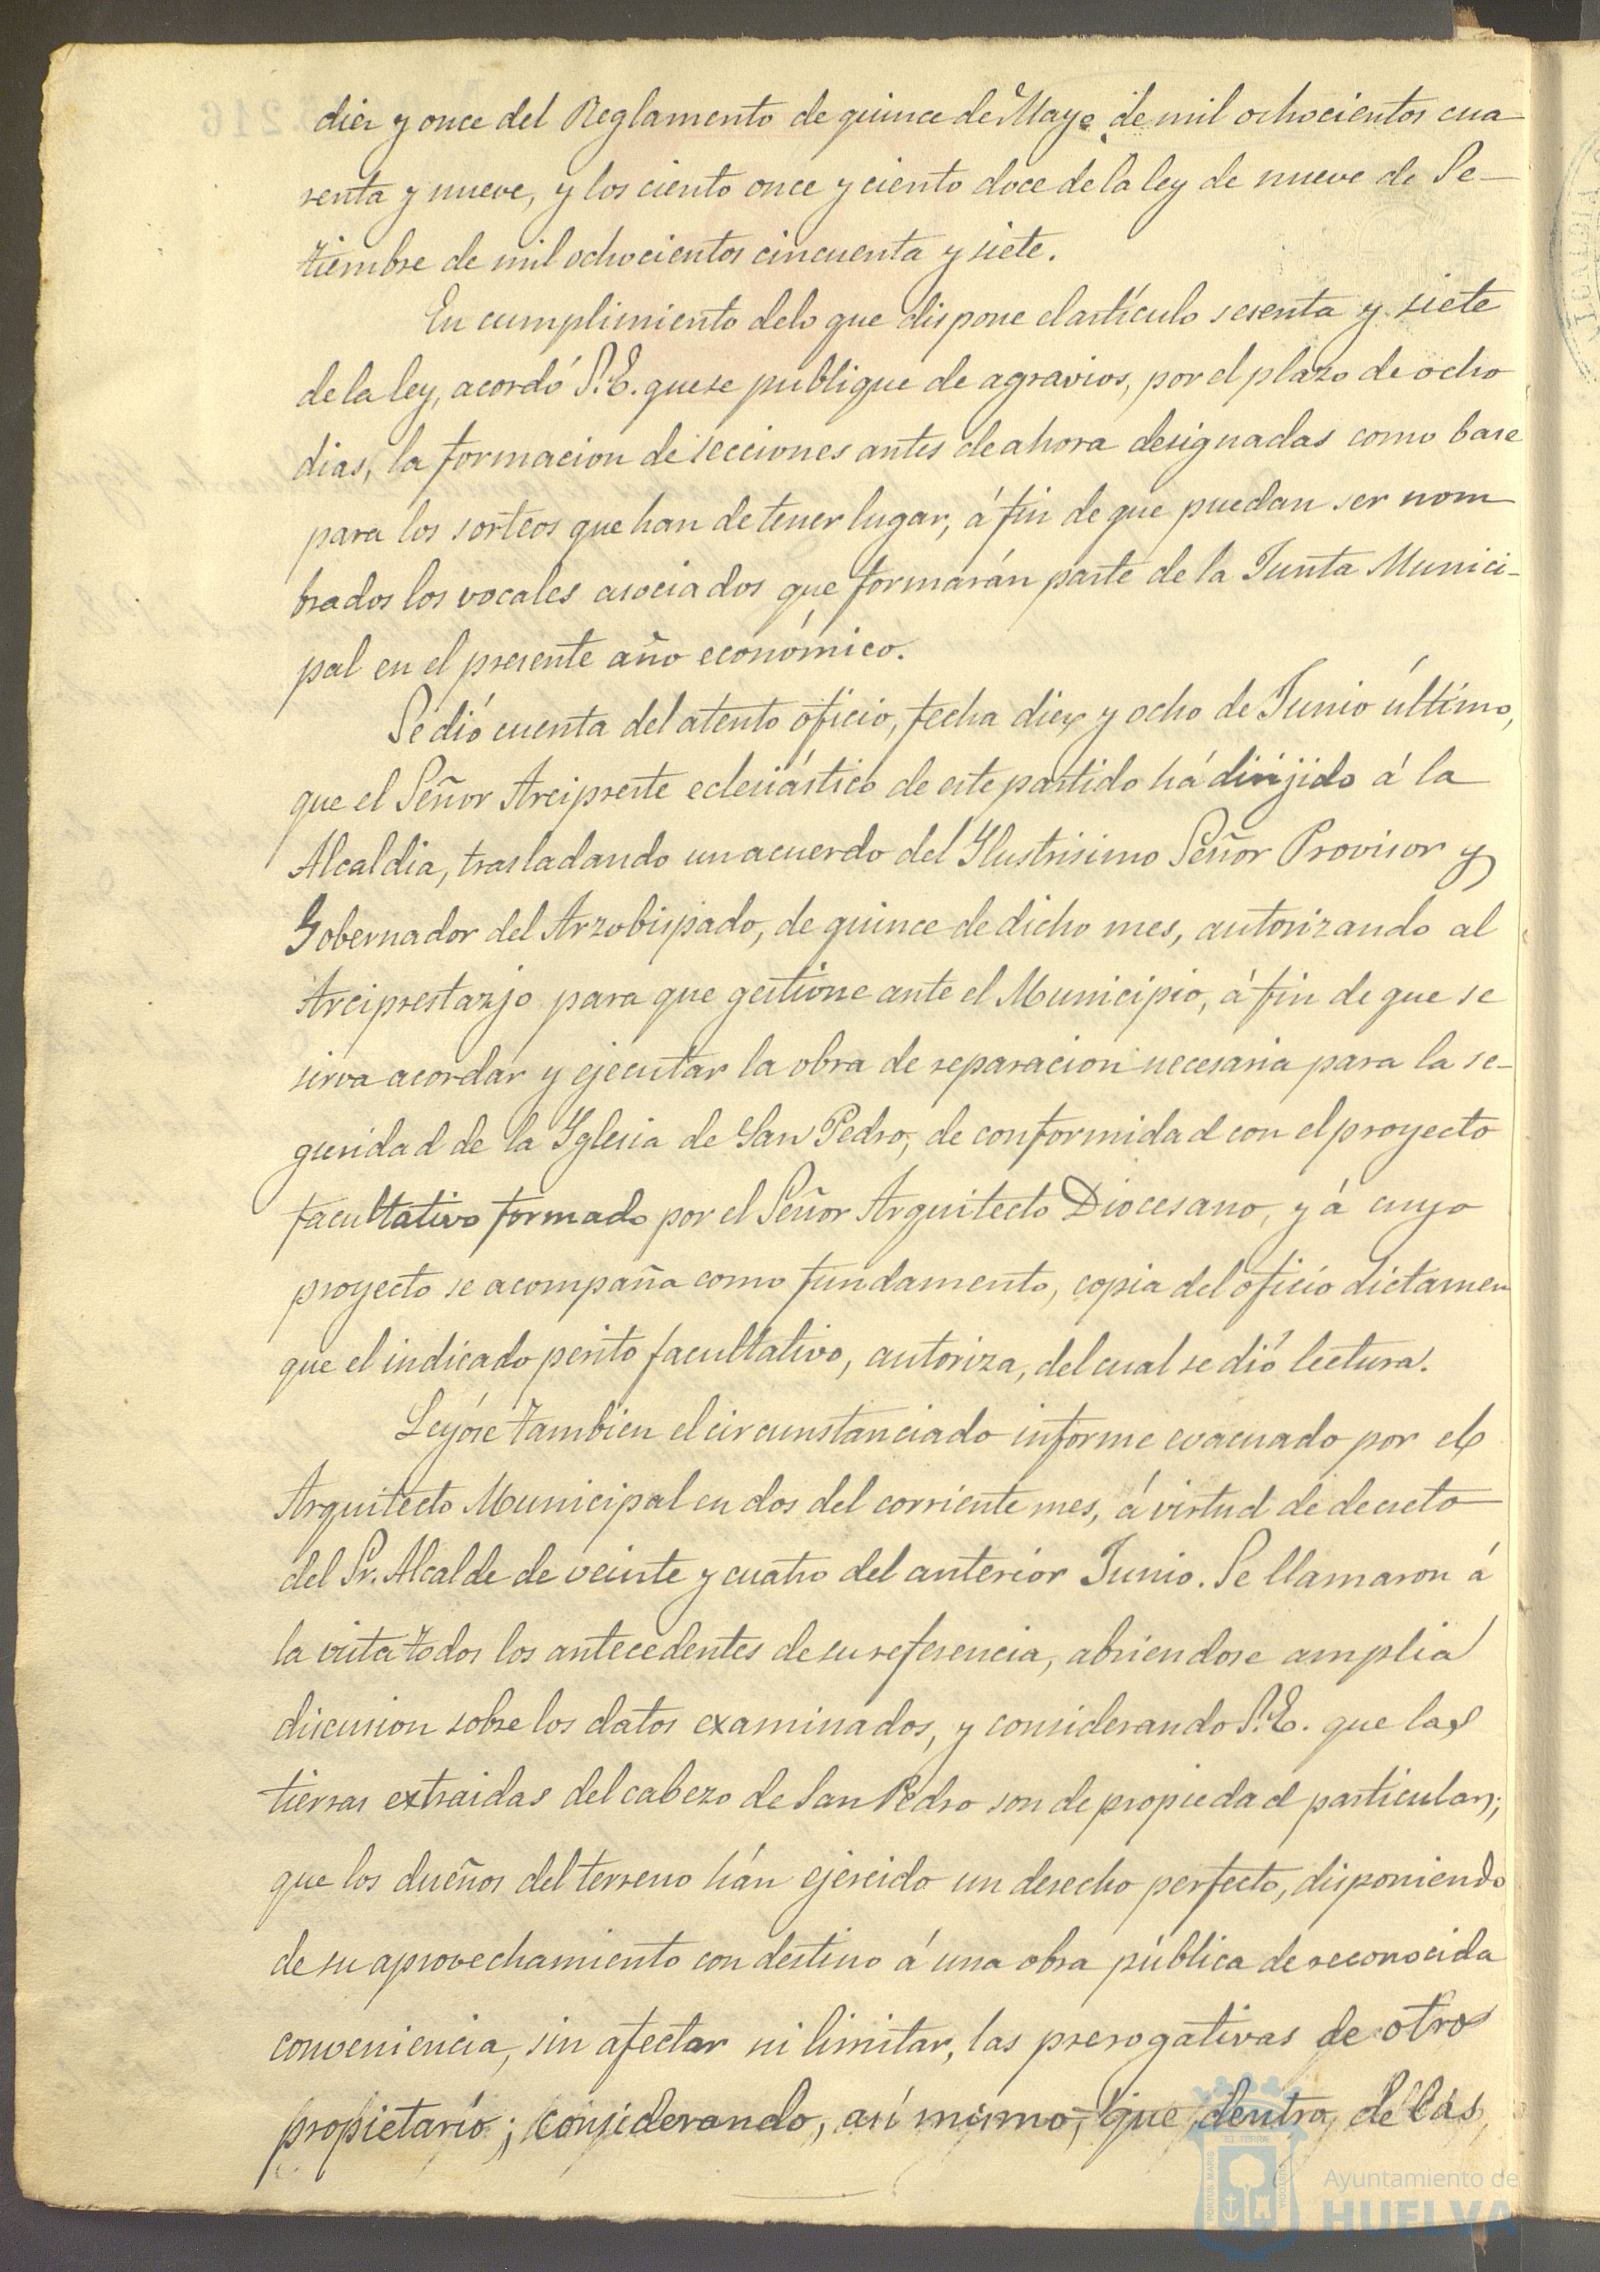 diez y once del Reglamento de quince de Mayo de mil ochocientos cua
renta y nueve, y los ciento once y ciento doce de la ley de nueve de Se-
tiembre de mil ochocientos cincuenta y siete.
En cumplimiento delo que dispone el artículo sesenta y siete
de la ley, acordó S.E. que se publique de agravios, por el plazo de ocho
dias, la formacion de secciones antes de ahora designadas como base
para los sorteos que han de tener lugar, á fin de que puedan ser nom
brados los vocales asociados que formarán parte de la Junta Munici-
pal en el presente año económico.
Se dió cuenta del atento oficio, fecha diez y ocho de Junio último,
que el Señor Arcipreste eclesiástico de este partido há dirijido á la
Alcaldia, trasladando un acuerdo del Ilustrisimo Señor Provisor y
Gobernador del Arzobispado, de quince de dicho mes, autorizando al
Arciprestazjo para que gestione ante el Municipio, á fin de que se
sirva acordar y ejecutar la obra de reparacion necesaria para la se-
guridad de la Iglesia de San Pedro, de conformidad con el proyecto
facultativo formado por el Señor Arquitecto Diocesano, y á cuyo
proyecto se acompaña como fundamento, copia del oficio dictamen
que el indicado perito facultativo, autoriza, del cual se dió lectura.
Leyóse tambien el circunstanciado informe evacuado por el
Arquitecto Municipal en dos del corriente mes, á virtud de decreto
del Sr. Alcalde de veinte y cuatro del anterior Junio. Se llamaron á
la vista todos los antecedentes de su referencia, abriendose amplia
discusion sobre los datos examinados, y considerando S.E. que las
tierras extraidas del cabezo de San Pedro son de propiedad particular;
que los dueños del terreno hán ejercido un derecho perfecto, disponiendo
de su aprovechamiento con destino á una obra pública de reconocida
conveniencia, sin afectar ni limitar, las prerogativas de otro
propietario; considerando, así mismo, que dentro de las
Ayuntamiento de
HUELVA